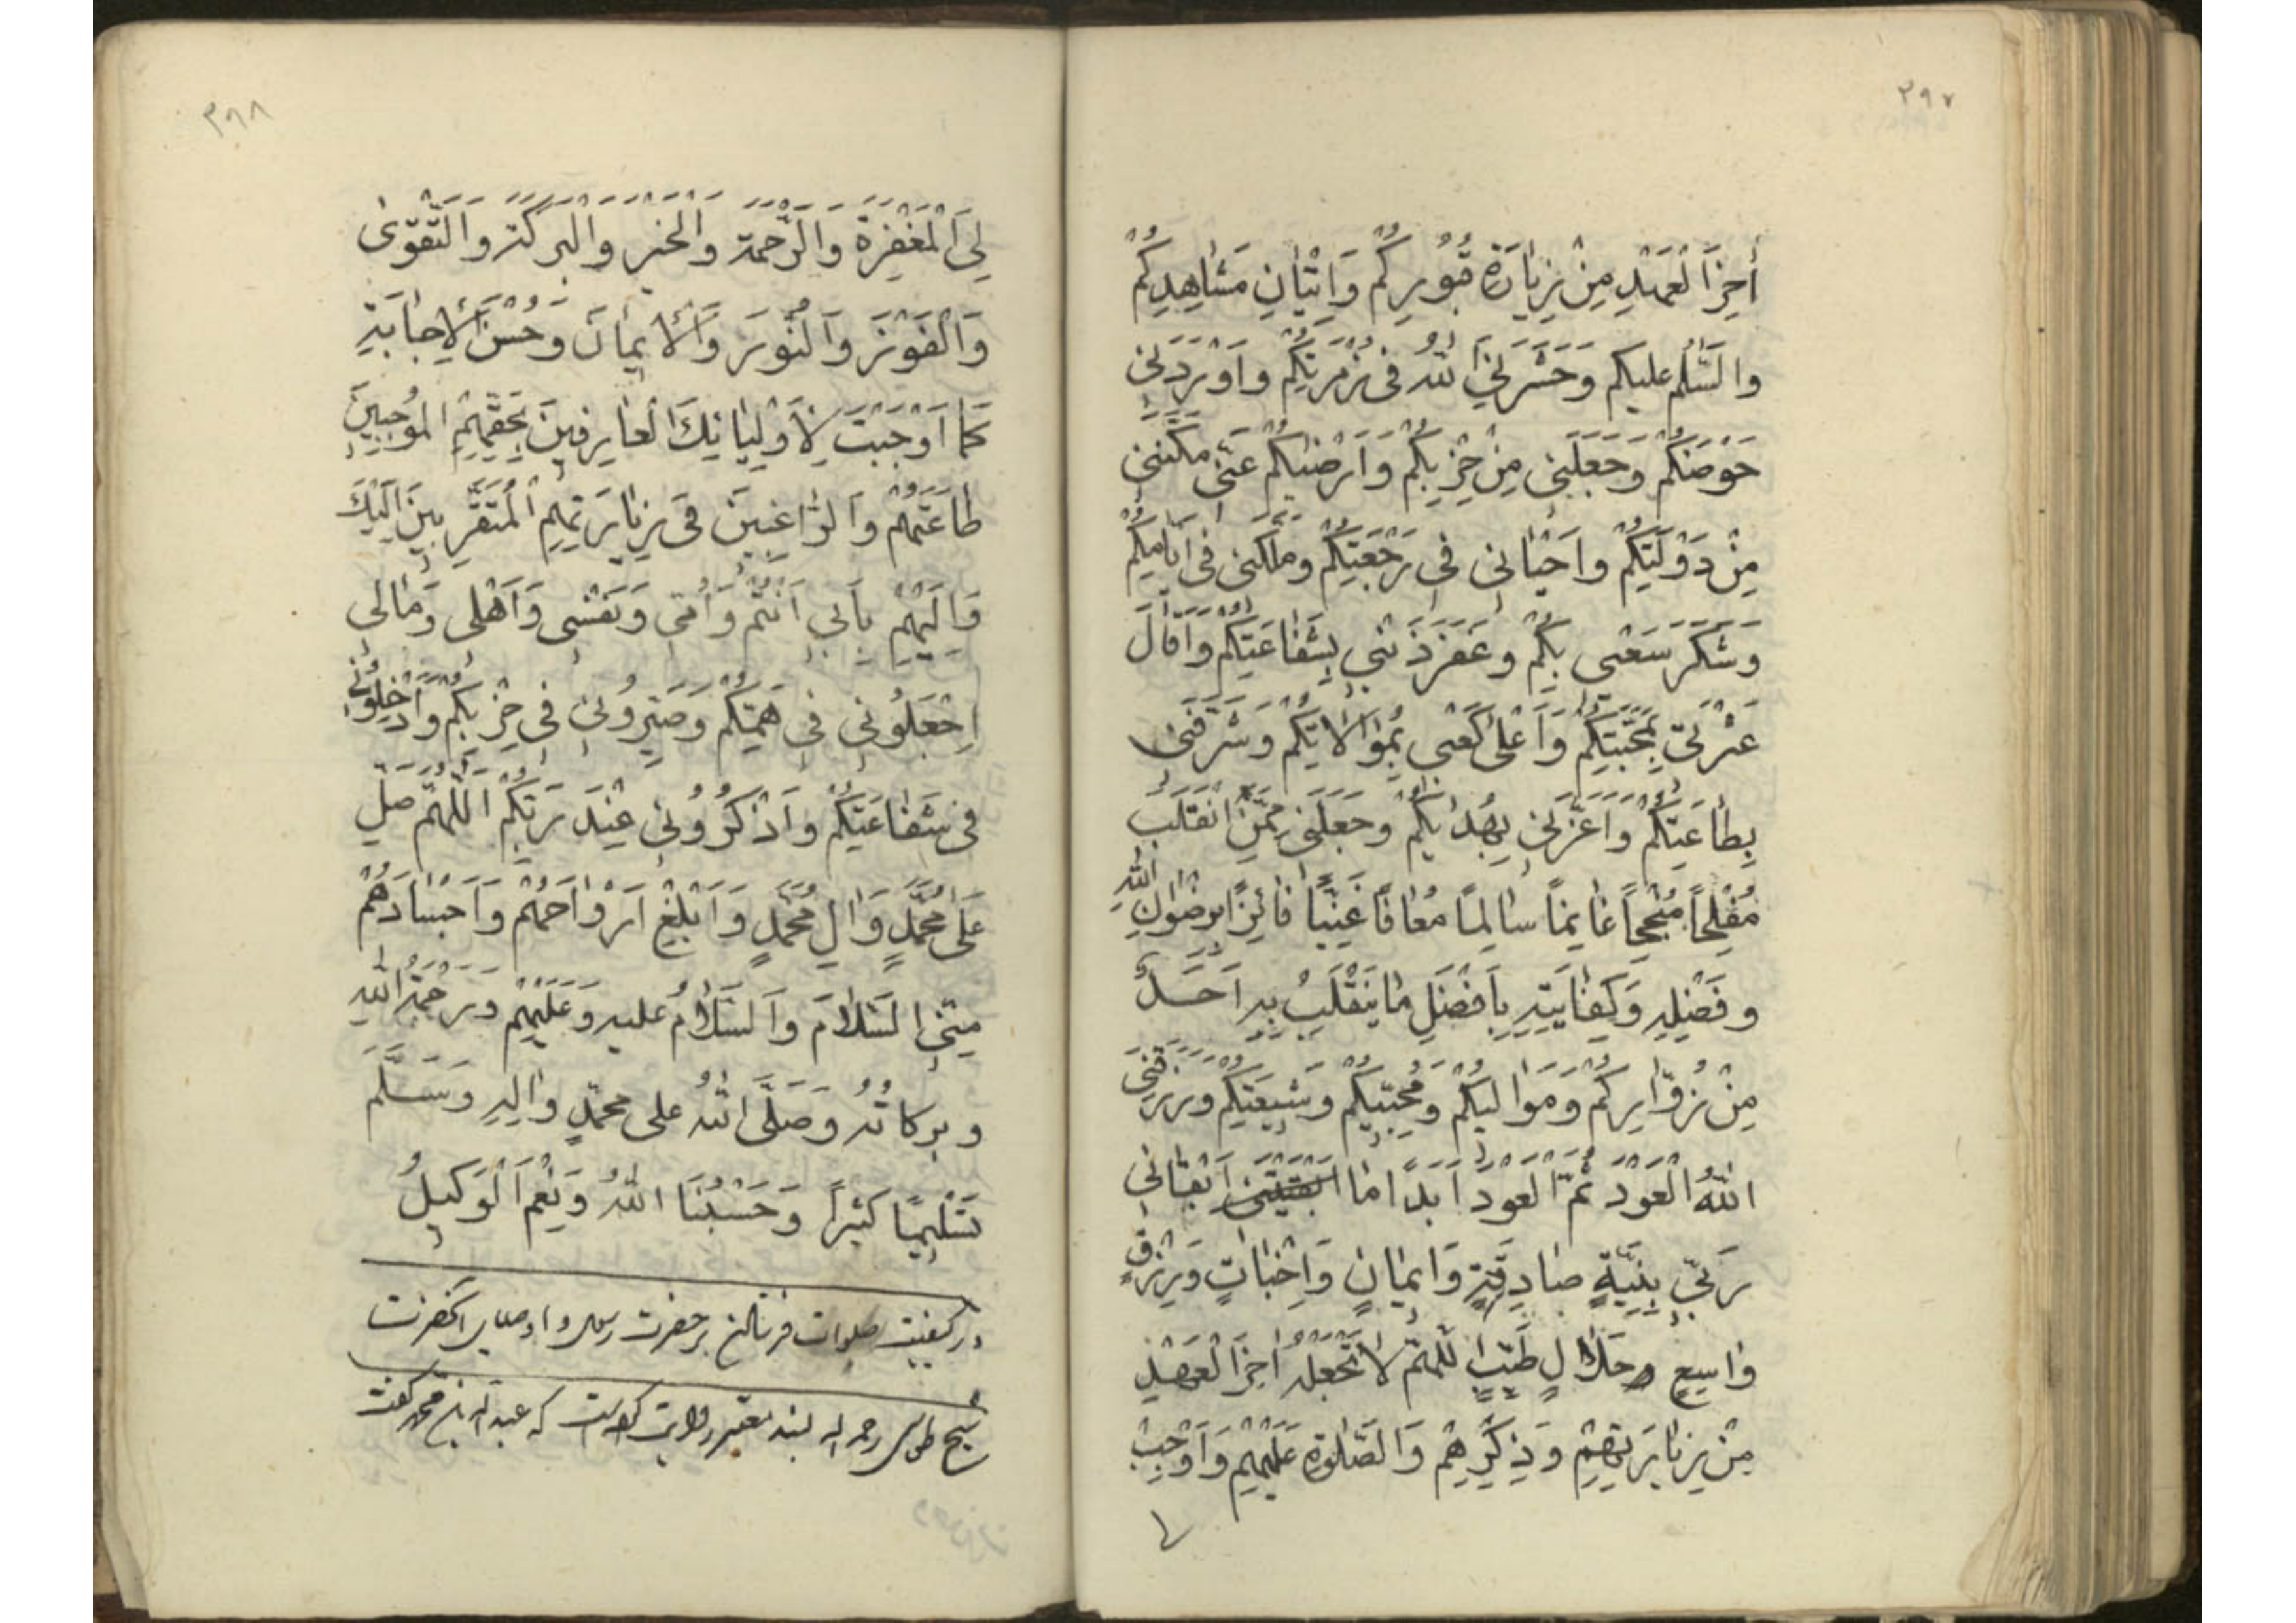 ٣٩٧
أخِرَ الْعَهْدِ مِنْ زِيٰارَةِ قُبُورِكُمْ وَاِتْيٰانِ مَشٰاهِدِكُمْ
والسَّلٰمُ عليكم وَحَشَرَنِيَ اللّٰهُ فى زُمْرَتِكُمْ وَاَوْرَدَنِى
حَوْضَكُمْ وَجَعَلَنِى مِنْ حِزْبِكُمْ وَاَرْضٰيكُمْ عَنّى مكَّنَنى
مِنْ دَوْلَتِكُمْ واَحْيٰانِى فى رَجْعَتِكُمْ وملّكنى فى ايّامِكُمْ
وَشَكَرَ سَعْيى بِكُمْ وغَفَرَ ذَنْبى بِشَفٰاعَتِكُمْ وَاَقٰالَ
عَثْرَتى بِمَحَبَّتِكُمْ وَاَعْلىٰ كَعْبى بِمُوٰالاٰتِكُمْ وَشَرَّفَنى
بِطٰاعَتِكُمْ وَاَعَزَّنِى بِهُدٰيكُمْ وَجَعَلَنى مِمَّنِ انْقَلَبَ
مُفْلِحاً مُنْجِحاً غٰانِماً سٰالِماً مُعٰافًا غَنِيّاً فٰائِزًا برضْوٰانِ اللّٰهِ
وفَضْلِهِ وَكِفٰايَتِهِ بِاَفْضَلِ مٰا يَنْقَلِبُ بِهِ اَحَدٌ
مِنْ زُوّٰارِكُمْ وَمَوٰاليكُمْ وَمُحِبّيكُمْ وَشيعَتِكُمْ وَرَزَقَنِىَ
اللّٰهُ الْعَوْدَ ثُمَّ الْعَوْدَ اَبَدًا مٰا ابقيتنى اَبْقٰانى
رَبّى بِنِيَّةٍ صٰادِقَةٍ وَايمٰانٍ وَاِخْبٰاتٍ وَرِزْقٍ
وٰاسِعٍ حَلاٰلٍ طَيّبٍ اللّٰهمّ لاٰتَجْعَلْهُ اٰخِرَ الْعَهْدِ
مِنْ زِيٰارَتِهِمْ وَذِكْرِهِمْ وَالصَّلٰوةِ عَلَيْهِمْ وَاَوْجِبْ
٣٩٨
لِىَ الْمَغْفِرَةَ وَالرَّحْمَةَ وَالْخَيْرَ وَالْبَرَكَةَ وَالتَّقْوىٰ
وَالْفَوْزَ وَالنُّورَ وَالْاِيمٰانَ وَحُسْنَ الْاِجٰابَةِ
كَمٰا اَوْجَبْتَ لِاَوْلِيٰائِكَ الْعٰارِفينَ بِحَقِّهِمْ الْمُوجِبينَ
طٰاعَتَهُمْ وَالرّٰاغِبينَ فى زِيٰارَتِهِمْ الْمُتَقَرِّبينَ اِلَيْكَ
وَاِلَيْهِمْ بِاَبى اَنْتُمْ وَاُمّى وَنَفْسى وَاَهْلى وَمٰالى
اِجْعَلُونى فى هَمِّكُمْ وَصَيِّرُونى فى حِزْبِكُمْ وَاَدْخِلُونى
فى شَفٰاعَتِكُمْ وَاذْكُرُونى عِنْدَ رَبِّكُمْ اللّٰهُمَّ صَلِّ
عَلىٰ مُحَمَّدٍ وَاٰلِ مُحَمَّدٍ وَاَبْلِغْ اَرْوٰاحَهُمْ وَاَجْسٰادَهُمْ
مِنّى السَّلاٰمَ وَالسَّلاٰمُ عليه وَعَلَيْهِمْ وَرَحْمَةُ اللّٰهِ
وبركاتُهُ وَصَلَّى اللّٰهُ على محمّدٍ واٰلِهِ وَسَلَّمَ
تَسْليماً كَثيراً وَحَسْبُنَا اللّٰهُ وَنِعْمَ الْوَكيلُ
در كيفيت صلوات فرستادن بر حضرت رسول و اوصياى آنحضرت
شيخ طوسى رحمه اله بسند معتبر روايت كرده است كه عبد اله بن محمد گفت